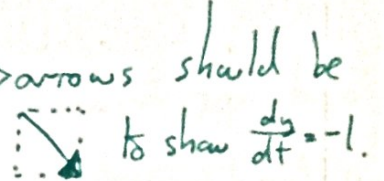 arrows should be
to show dy/dt = -1.